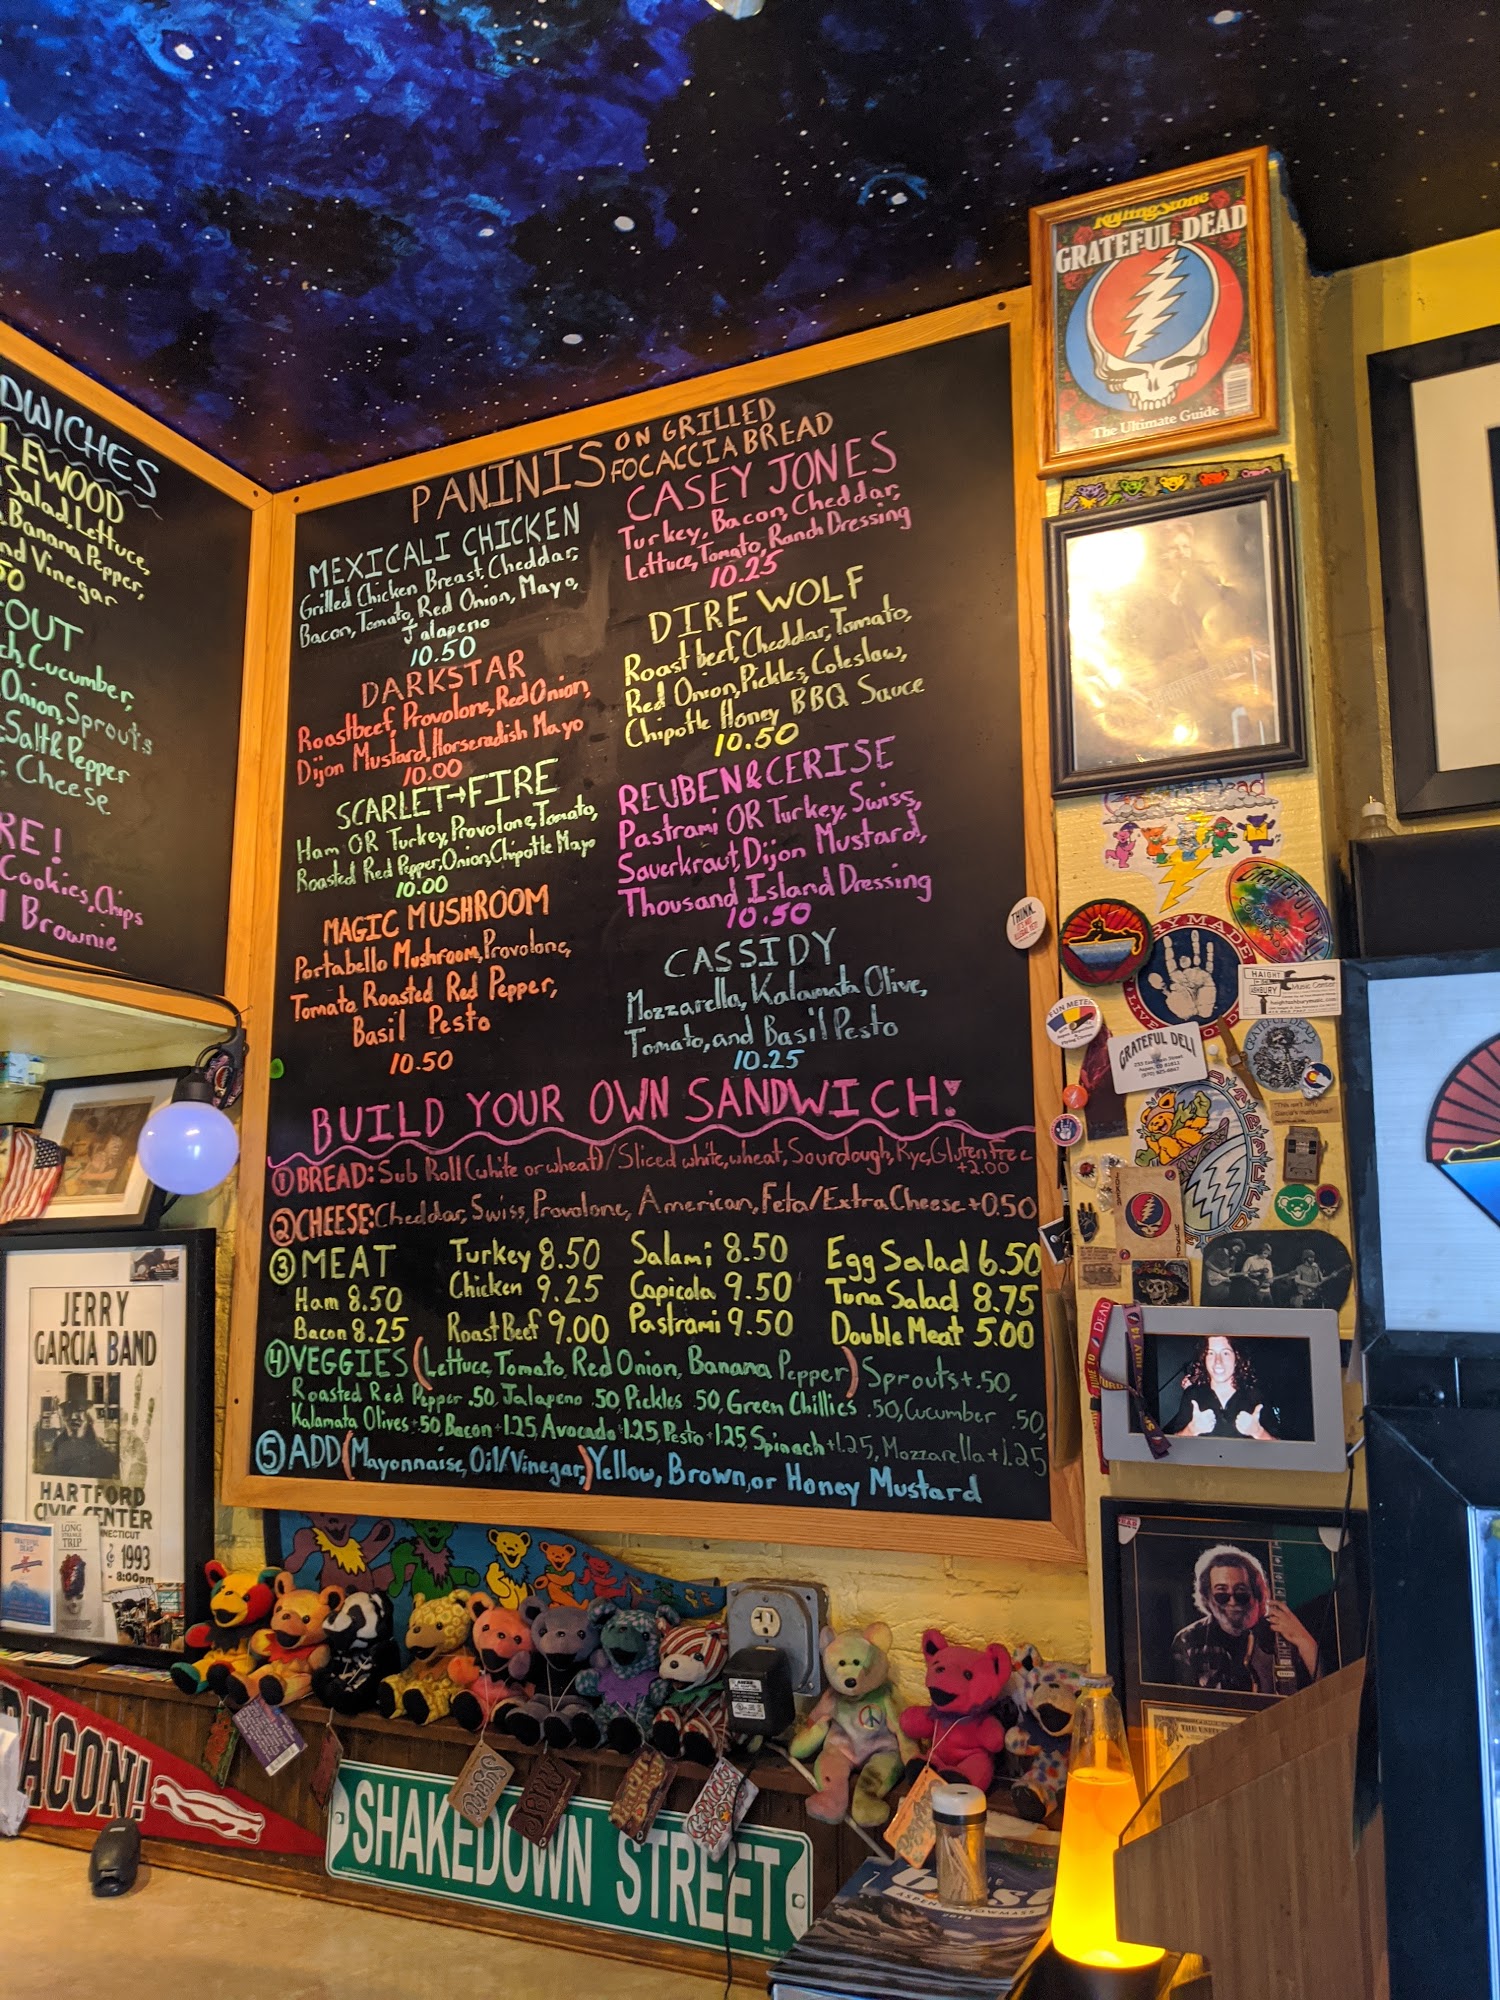 DWICHES
LEWOOD
Salad, Lettuce,
Banana Pepper,
nd Vinegar
50
OUT
ch, Cucumber,
Onion, Sprouts
Salt & Pepper
Cheese
RE!
Cookies, Chips
Brownie
PANINIS ON GRILLED
FOCACCIA BREAD
MEXICALI CHICKEN
Grilled Chicken Breast, Cheddar,
Bacon, Tomato, Red Onion, Mayo,
Jalapeno
10.50
DARKSTAR
Roastbeef, Provolone, Red Onion,
Dijon Mustard, Horseradish Mayo
10.00
SCARLET→FIRE
Ham OR Turkey, Provolone, Tomato,
Roasted Red Pepper, Onion, Chipotle Mayo
10.00
MAGIC MUSHROOM
Portabello Mushroom, Provolone,
Tomato, Roasted Red Pepper,
Basil Pesto
10.50
CASEY JONES
Turkey, Bacon, Cheddar,
Lettuce, Tomato, Ranch Dressing
10.25
DIRE WOLF
Roast beef, Cheddar, Tomato,
Red Onion, Pickles, Coleslaw,
Chipotle Honey BBQ Sauce
10.50
REUBEN & CERISE
Pastrami OR Turkey, Swiss,
Sauerkraut, Dijon Mustard,
Thousand Island Dressing
10.50
CASSIDY
Mozzarella, Kalamata Olive,
Tomato, and Basil Pesto
10.25
BUILD YOUR OWN SANDWICH!
① BREAD: Sub Roll (white or wheat) / Sliced white, wheat, Sourdough, Rye, Gluten Free
+2.00
② CHEESE: Cheddar, Swiss, Provolone, American, Feta/Extra Cheese +0.50
③ MEAT Turkey 8.50 Salami 8.50 Egg Salad 6.50
Ham 8.50 Chicken 9.25 Capicola 9.50 Tuna Salad 8.75
Bacon 8.25 Roast Beef 9.00 Pastrami 9.50 Double Meat 5.00
④ VEGGIES (Lettuce, Tomato, Red Onion, Banana Pepper) Sprouts +.50,
Roasted Red Pepper .50, Jalapeno .50, Pickles .50, Green Chillies .50, Cucumber .50,
Kalamata Olives +.50 Bacon +1.25, Avocado +1.25, Pesto +1.25, Spinach +1.25, Mozzarella +1.25
⑤ ADD (Mayonnaise, Oil/Vinegar,) Yellow, Brown, or Honey Mustard
Rolling Stone
GRATEFUL DEAD
The Ultimate Guide
THINK.
IT'S NOT
ILLEGAL YET!
GRATEFUL DEAD
ASPEN
COLORADO
HAIGHT
ASHBURY
Music Center
FUN METER
GRATEFUL DELI
233 East Main Street
Aspen, CO 81611
(970) 925-6647
GRATEFUL DEAD
JERRY
GARCIA BAND
HARTFORD
CIVIC CENTER
1993
- 8:00pm
LONG
STRANGE
TRIP
BACON!
SHAKEDOWN STREET
ASPEN SNOWMASS